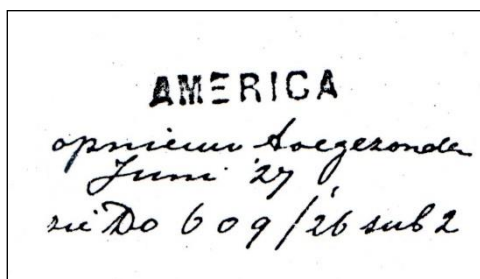 AMERICA
opnieuw toegezonden
Juni '27
zie Do 609/26 sub 2